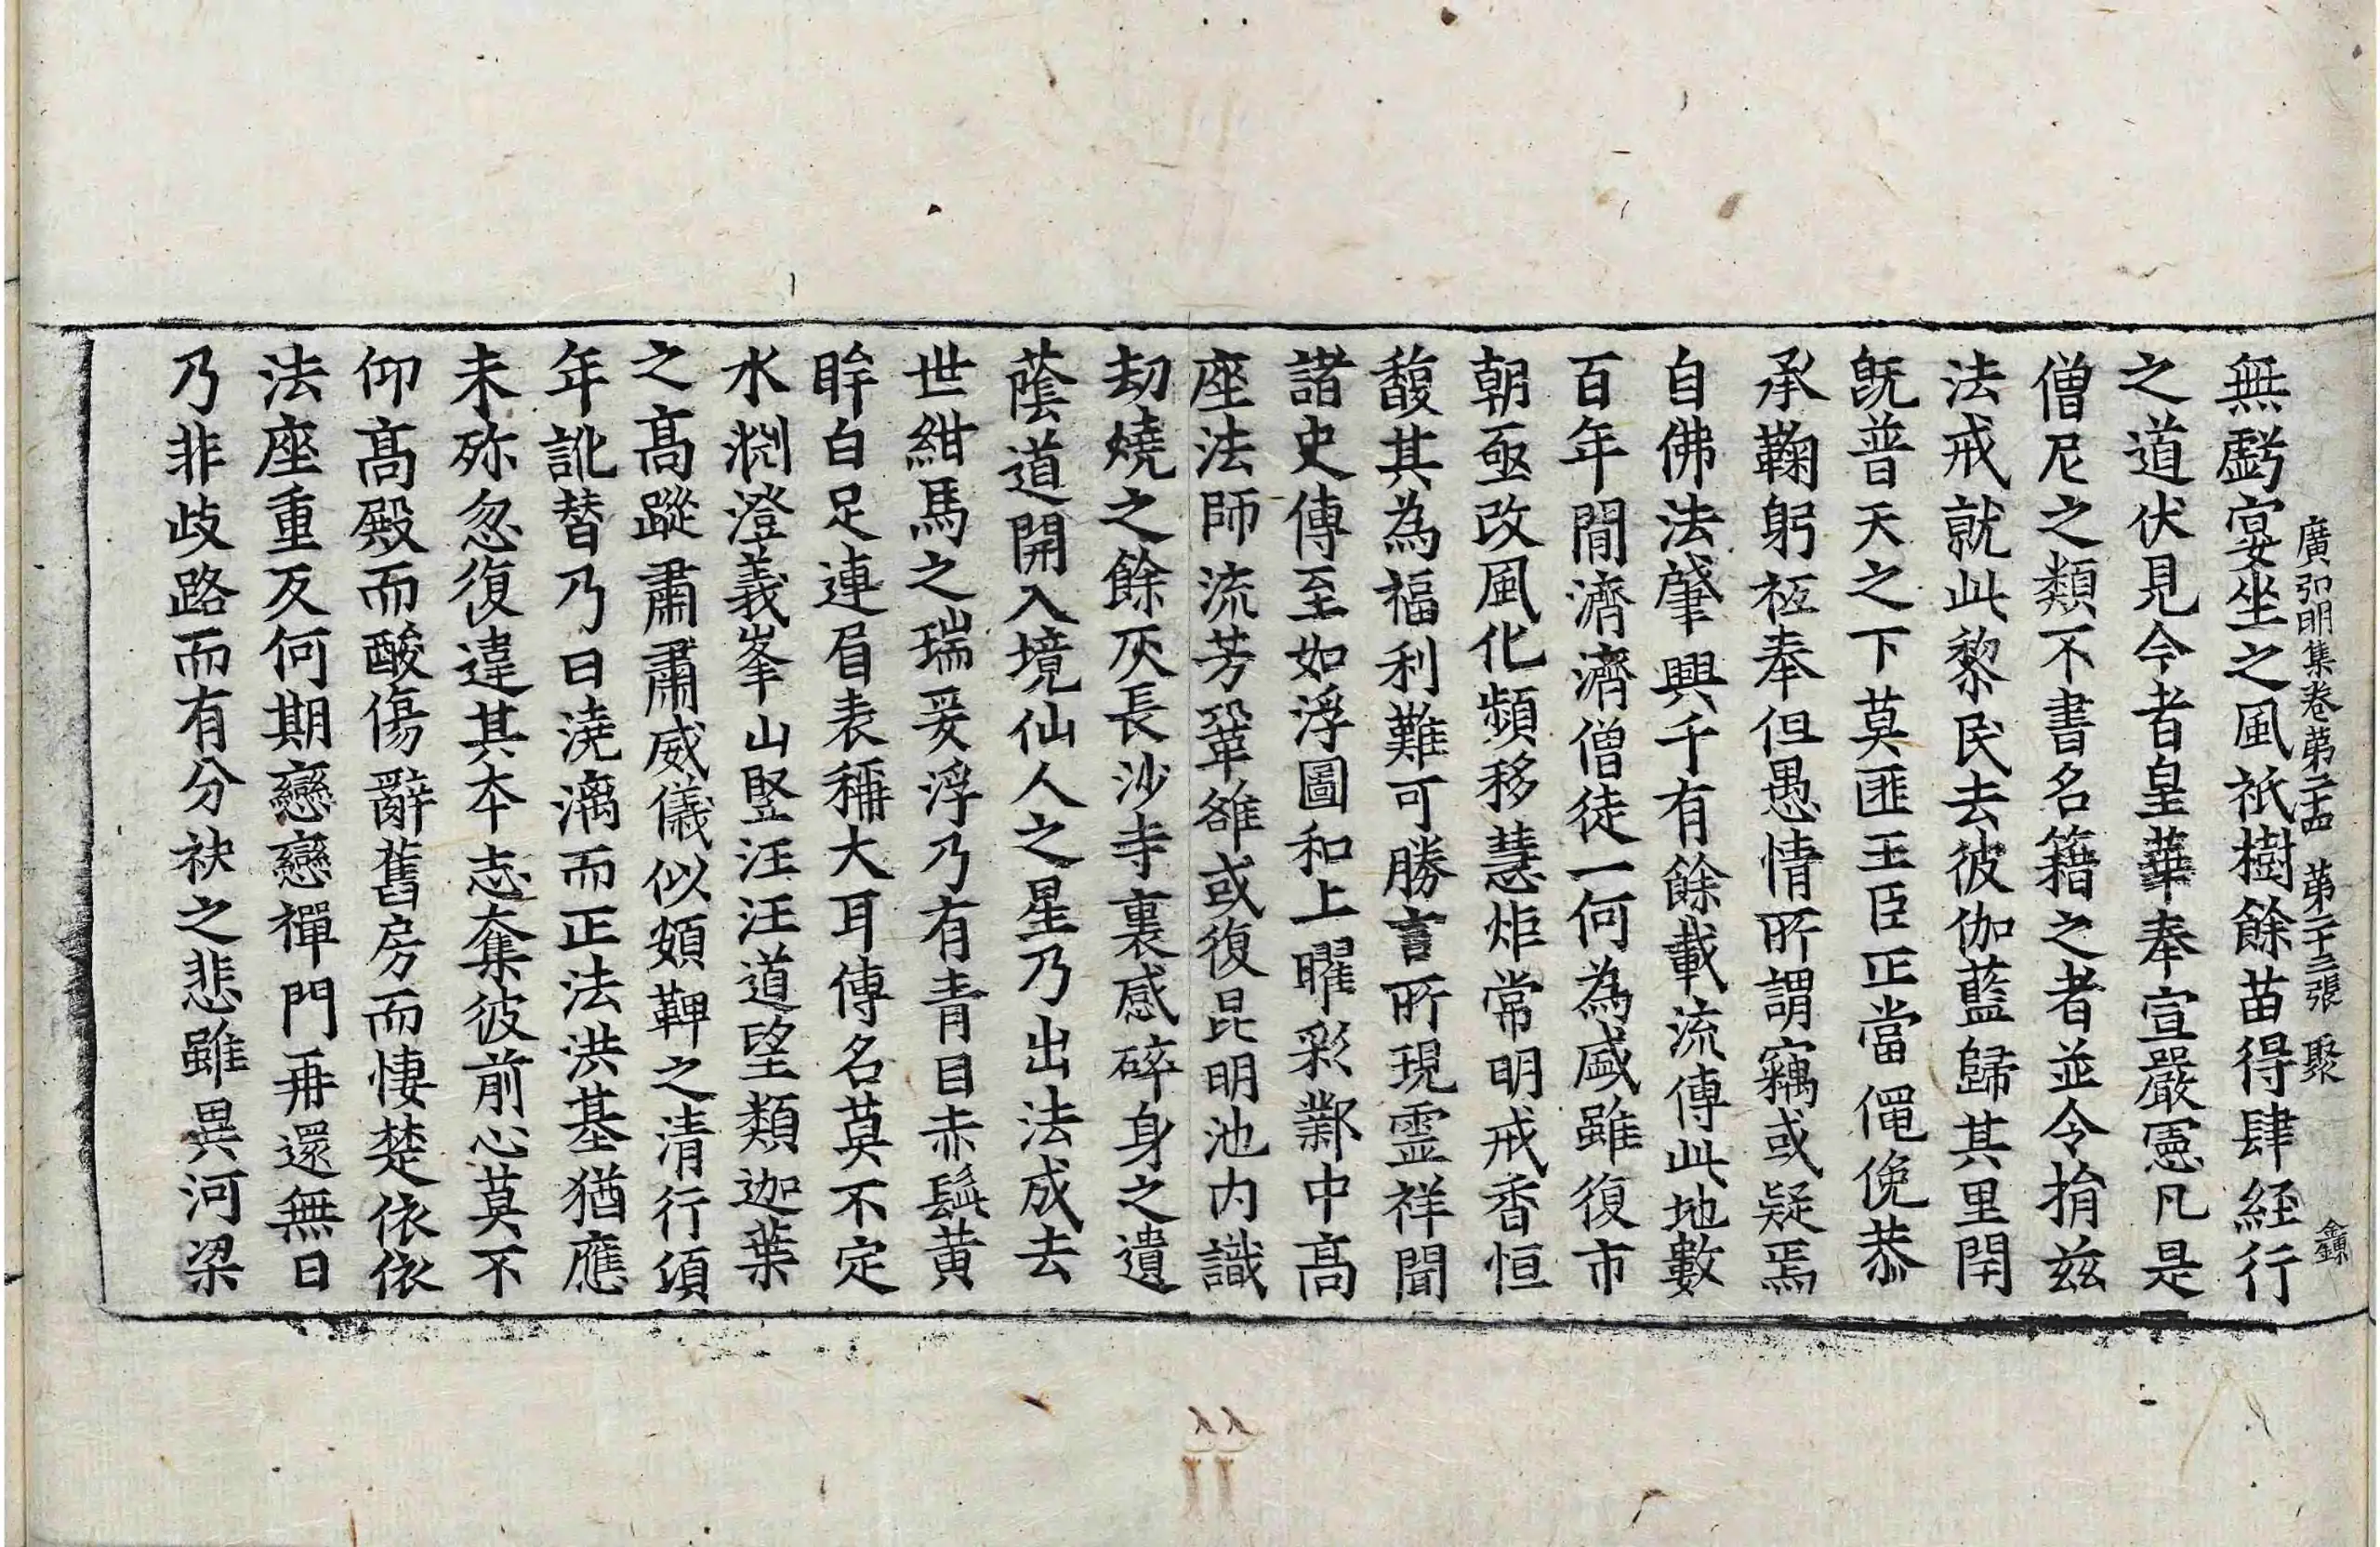 廣弘明集卷第二十四 第二十三張 聚
無虧宴坐之風祇樹餘苗得肆經行
之道伏見今者皇華奉宣嚴憲凡是
僧尼之類不書名籍之者並令捐兹
法戒就此黎民去彼伽藍歸其里閈
旣普天之下莫匪王臣正當僶俛恭
承鞠躬祗奉但愚情所謂竊或疑焉
自佛法肇興千有餘載流傳此地數
百年間濟濟僧徒一何為盛雖復市
朝亟改風化頻移慧炬常明戒香恒
馥其為福利難可勝言所現霊祥聞
諸史傳至如浮圖和上曜彩鄴中高
座法師流芳鞏雒或復昆明池內識
劫燒之餘灰長沙寺裏感碎身之遺
蔭道開入境仙人之星乃出法成去
世紺馬之瑞爰浮乃有青目赤鬚黃
眸白足連眉表稱大耳傳名莫不定
水渊澄義峯山竪汪汪道望類迦葉
之高蹤肅肅威儀似頞鞞之清行湏
年訛替乃曰澆漓而正法洪基猶應
未殄忽復違其本志奪彼前心莫不
仰高殿而酸傷辭舊房而悽楚依依
法座重反何期戀戀禪門再還無日
乃非歧路而有分袂之悲雖異河梁